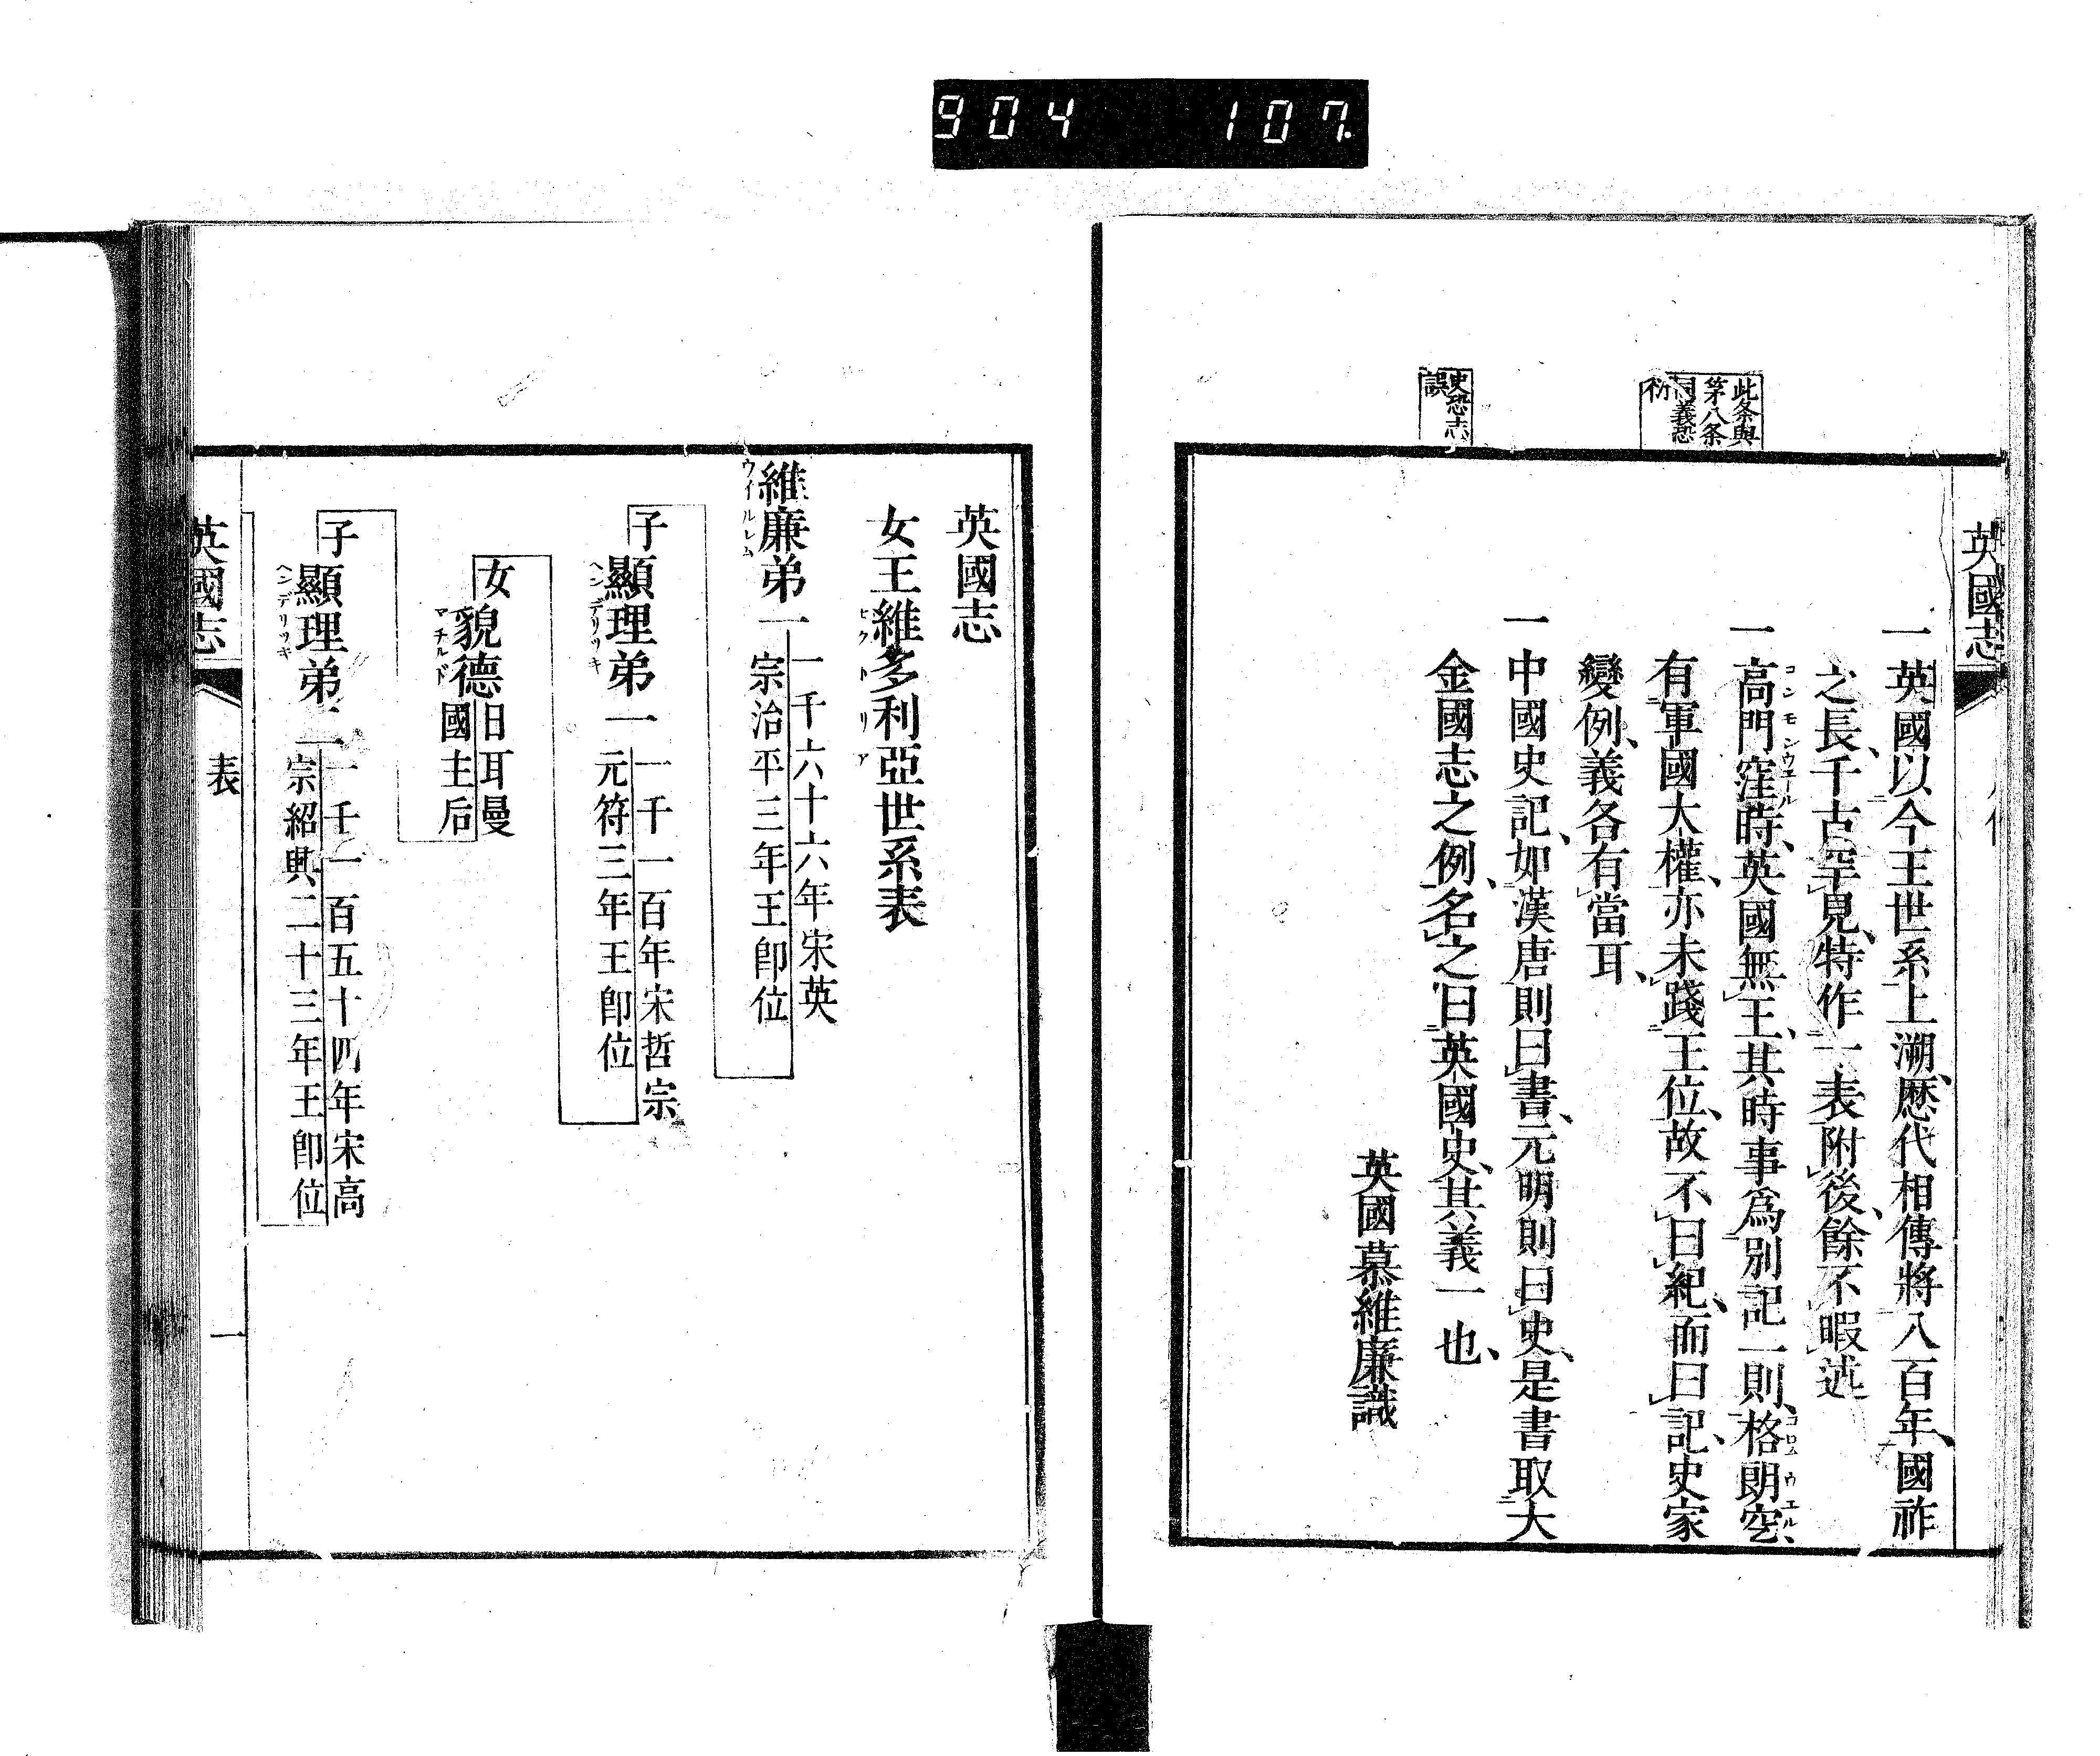 904 107
英國志
此条與
第八条
同義恐
衍
史恐志
誤
一英國以今王世系上溯、歴代相傳將八百年、國祚
之長、千古罕見、特作一表附後、餘不暇述
一高門窪時、英國無王、其時事爲別記一則、格朗空
コンモンウエール
コロムウエル、
有軍國大權、亦未踐王位、故不曰紀、而曰記、史家
變例、義各有當耳、
一中國史記、如漢唐則曰書、元明則曰史、是書取大
金國志之例、名之曰英國史、其義一也、
英國慕維廉識
英國志
女王維多利亞世系表
ヒクトリア
維廉弟一
ウイルレム
一千六十六年宋英
宗治平三年王卽位
子顯理弟一
ヘンデリッキ
一千一百年宋哲宗
元符三年王卽位
女貌德
マチルド
日耳曼
國主后
子顯理弟二
ヘンデリッキ
一千一百五十四年宋高
宗紹興二十三年王卽位
英國志
表
一